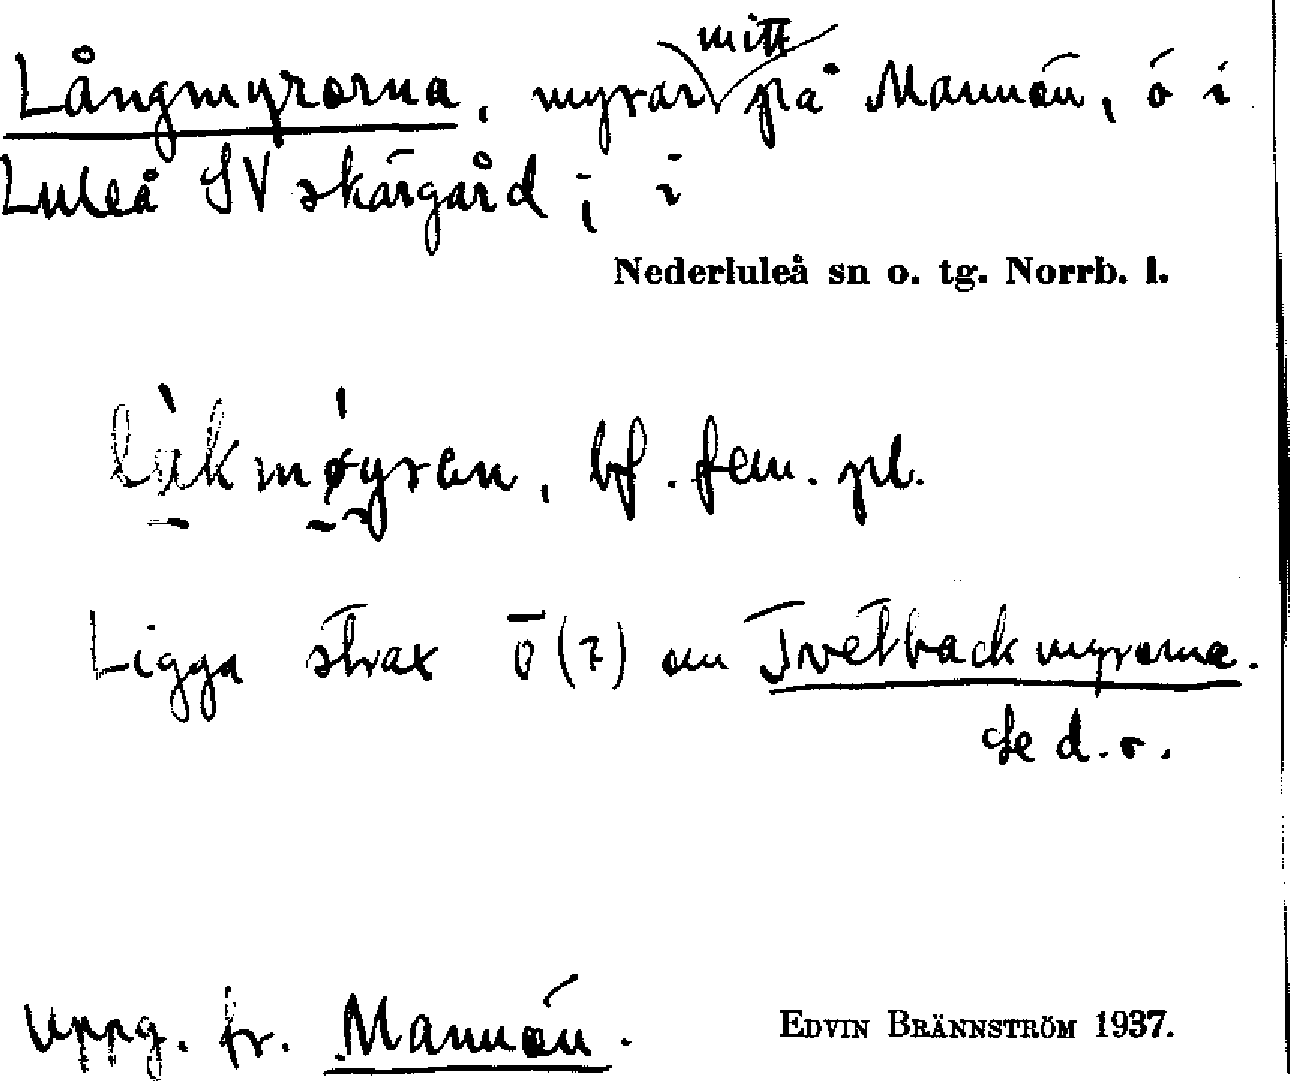 Långmyrorna, myrar mitt på Mannön, ö i
Luleå SV skärgård; i
Nederluleå sn o. tg. Norrb. l.
bf. fem. pl.
Ligga strax ö (?) om Tvetbackmyrorna.
Se d. o.
Uppg. fr. Mannön.
EDVIN BRÄNNSTRÖM 1937.